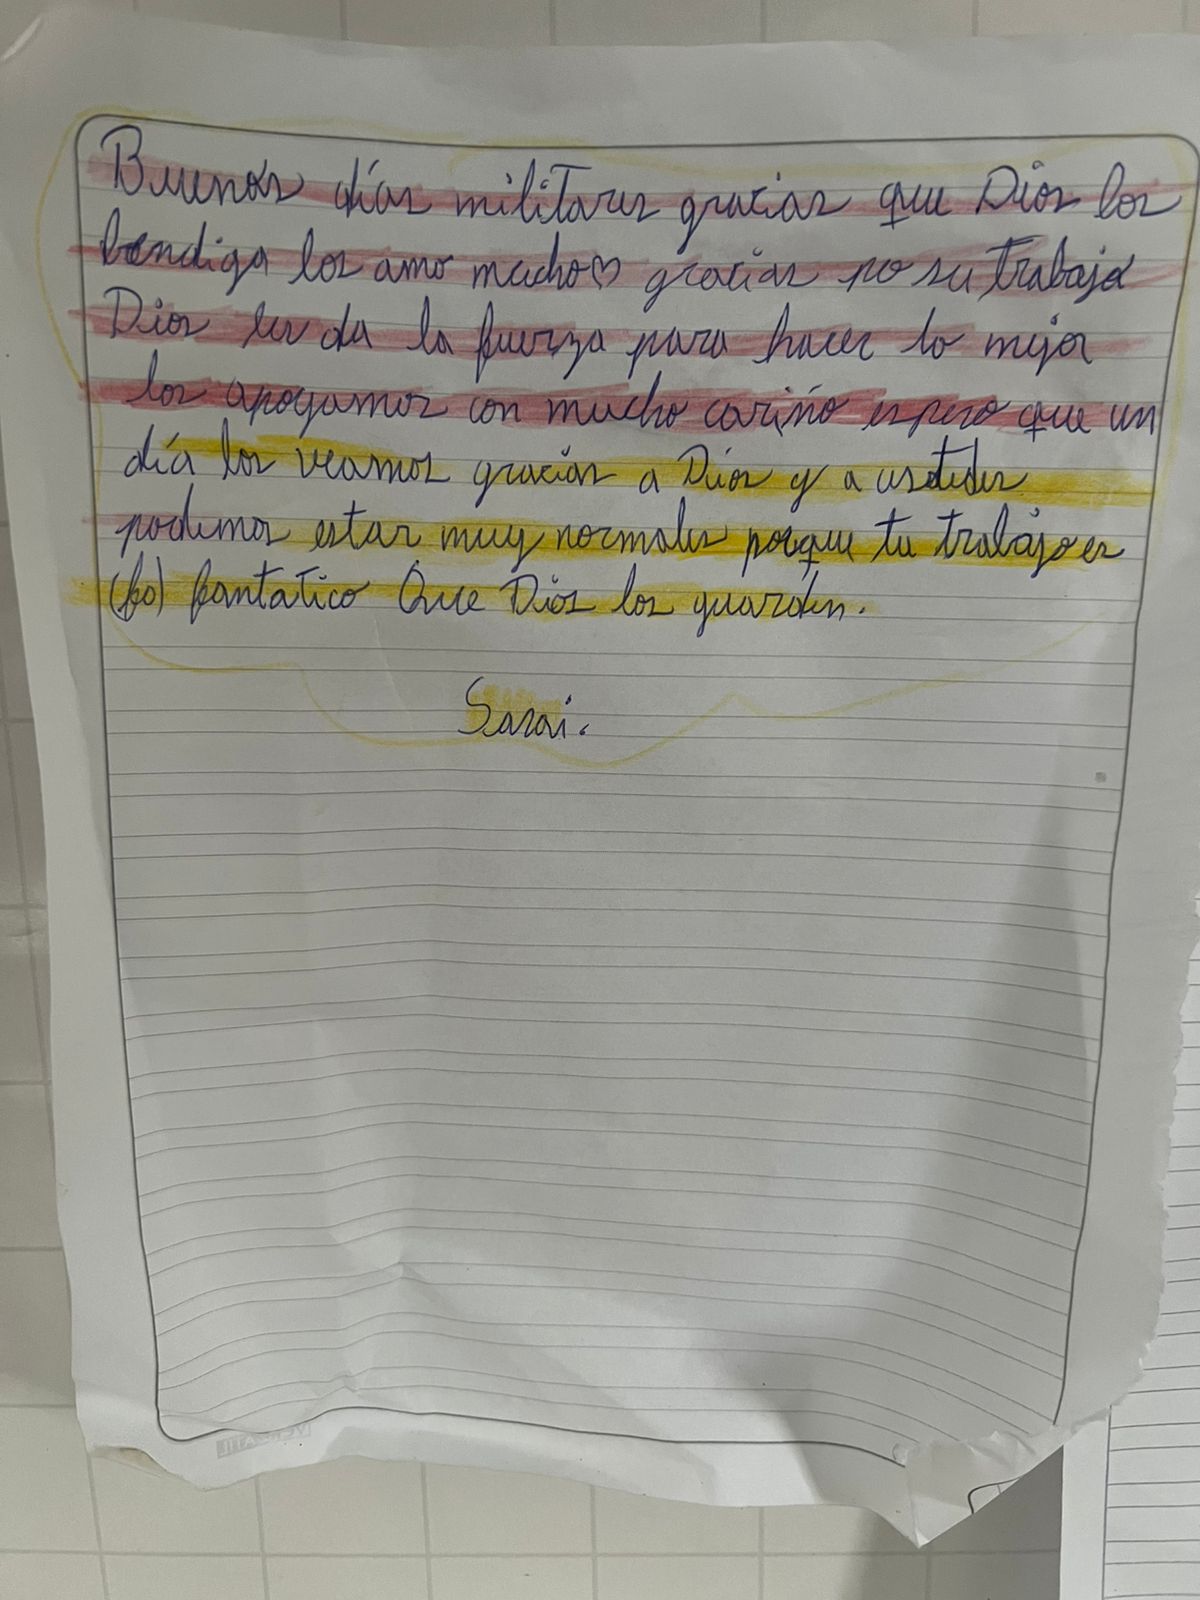 Buenos días militares gracias que Dios los
bendiga los amo mucho♡ gracias po su trabajo
Dios les da la fuerza para hacer lo mejor
los apoyamos con mucho cariño espero que un
día los veamos gracias a Dios y a ustedes
podemos estar muy normales porque tu trabajo es
(fo) fantatico Que Dios los guarden.
Sarai.